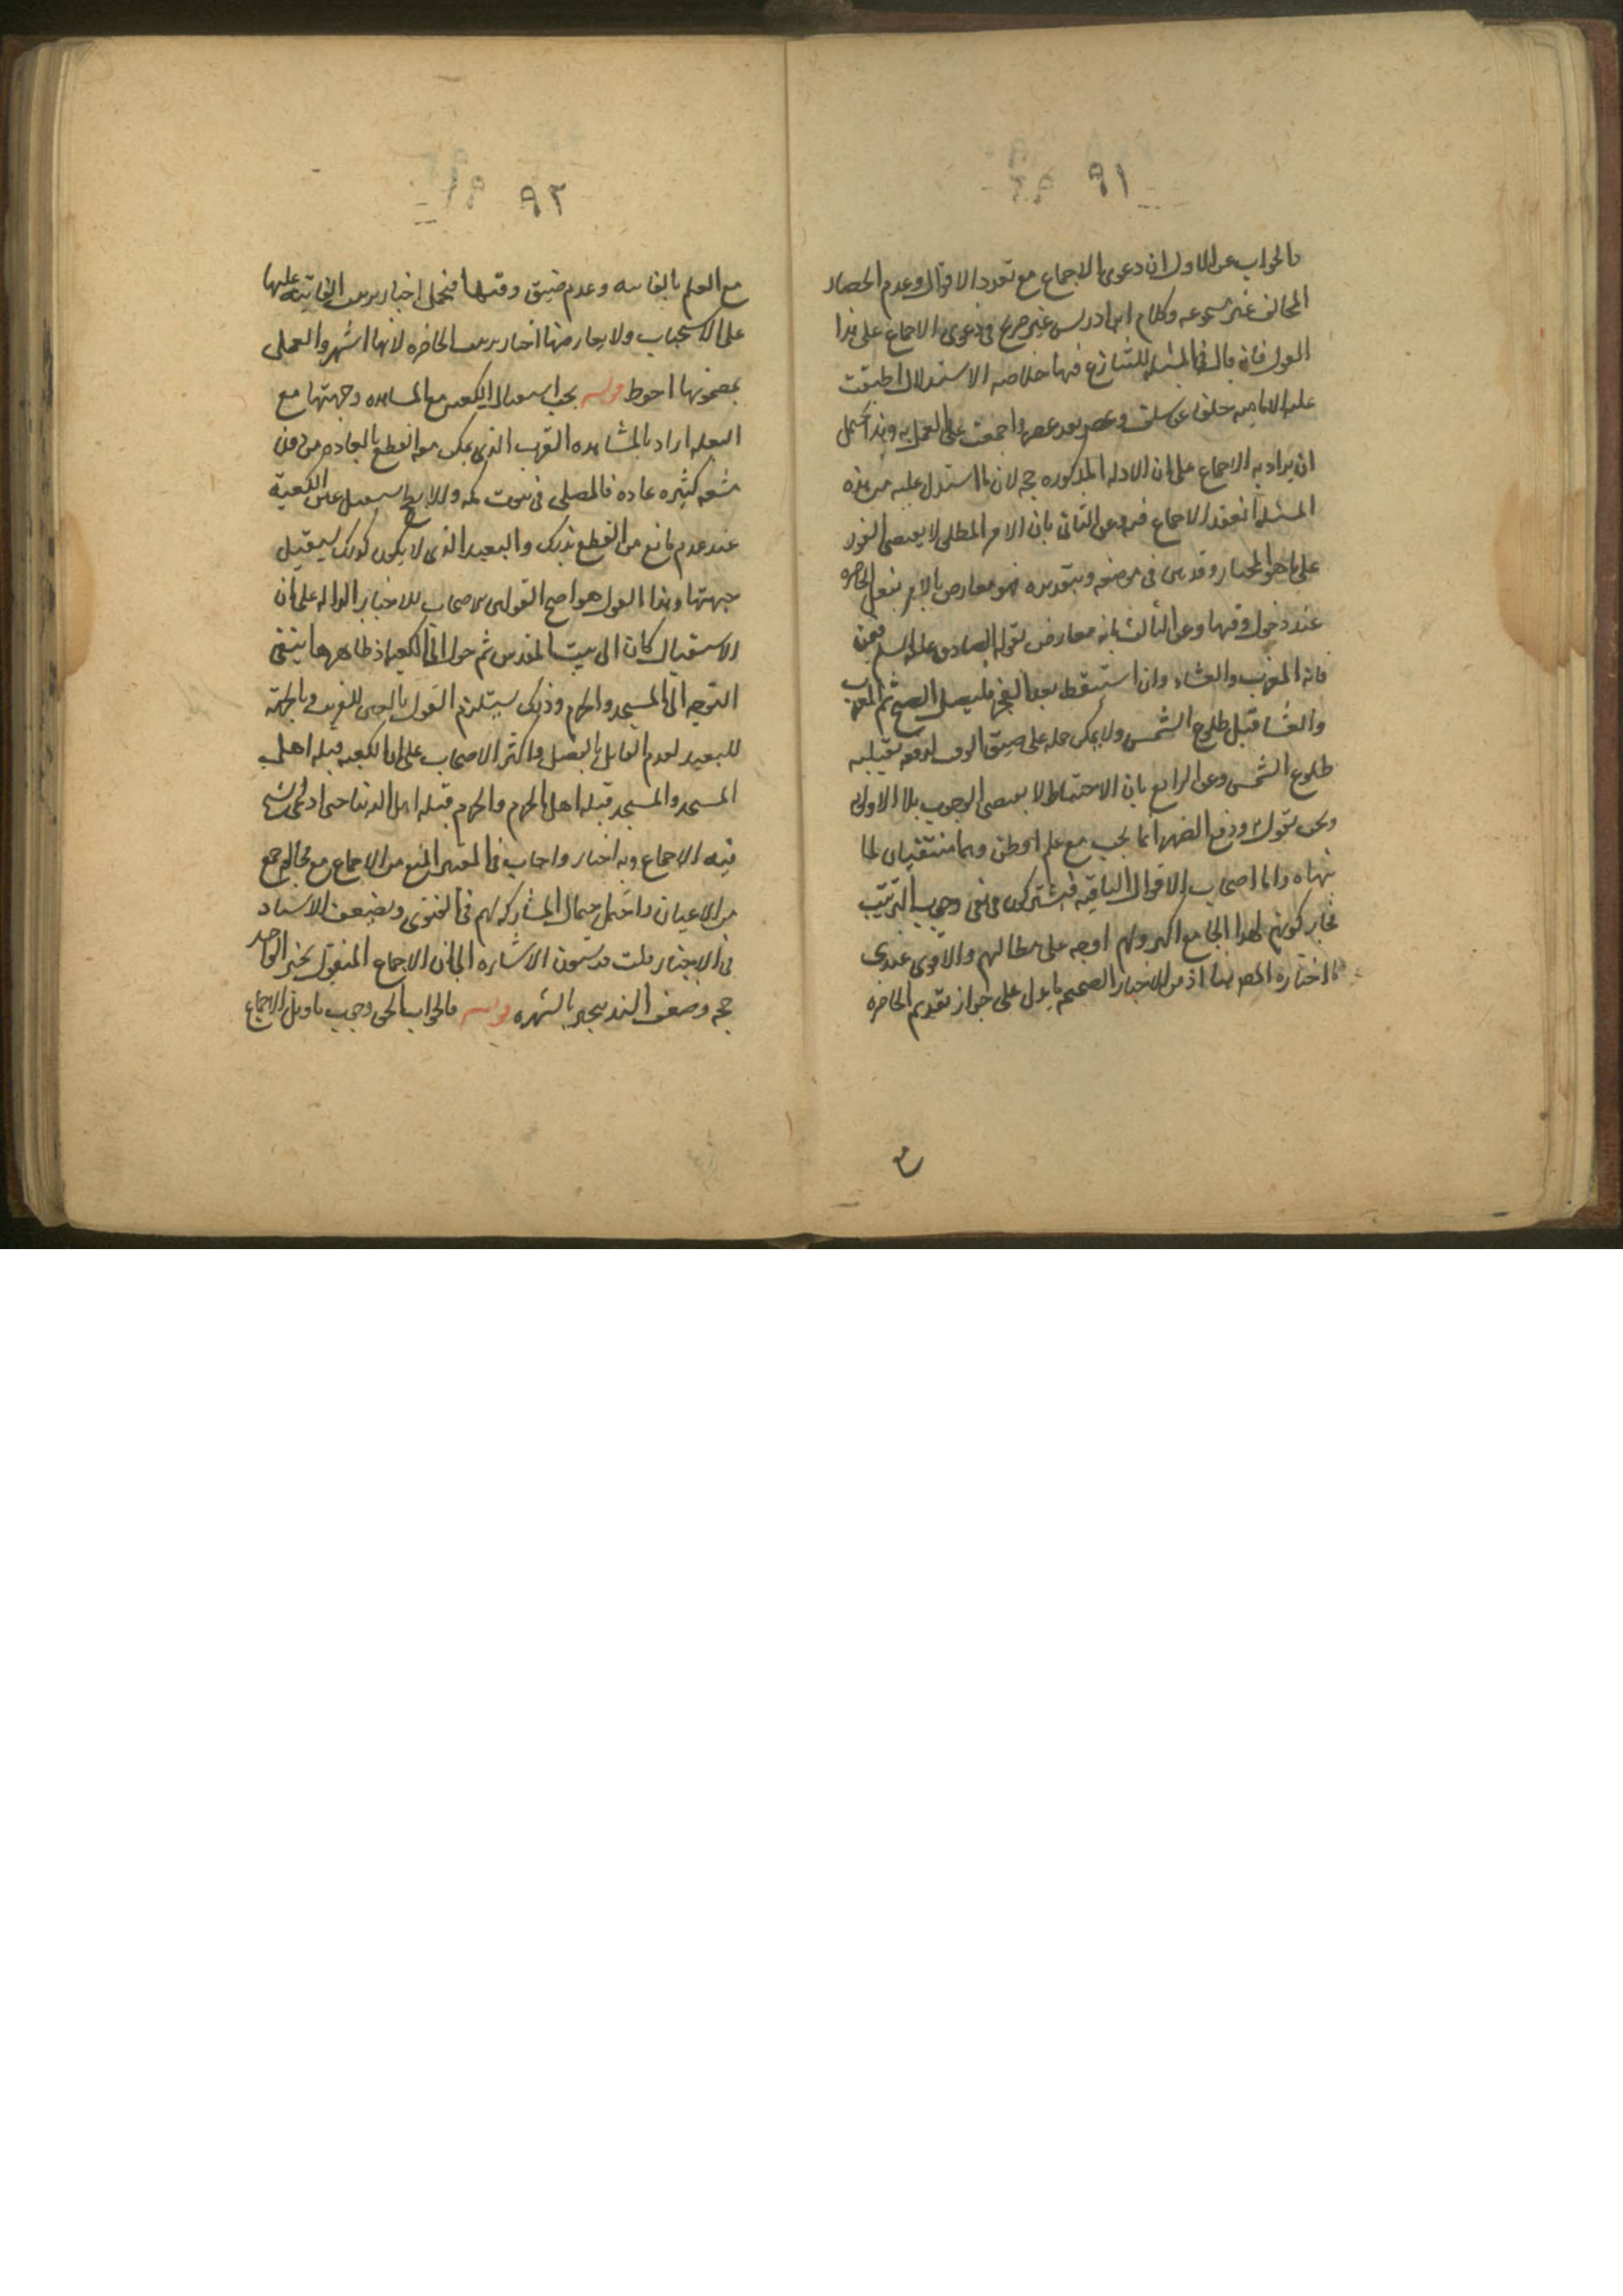 ٩١
فالجواب عن الاول ان دعوى الاجماع مع تعدد الاقوال وعدم انحصار
المخالف غير مسموعه وكلام ابن ادريس غير صريح في دعوى الاجماع على هذا
القول فانه قال في المسئله المتنازع فيها خلاصه الاستدلال اطبقت
عليه الاماميه خلفا عن سلف وعصر بعد عصر واجمعت على العمل به وهذا يحتمل
ان يراد به الاجماع على ان الادله المذكوره حجه لان ما استدل عليه من هذه
المسئله انعقد الاجماع فيه وعن الثاني بان الامر المطلق لا يقتضي الفور
على ما هو المختار وقد بين في موضعه وبتقديره فهو معارض بالامر بفعل الحاضره
عند دخول وقتها وعن الثالث بانه معارض بقول الصادق عليه السلم فيمن
فاته المغرب والعشاء وان استيقظ بعد الفجر فليصل الصبح ثم المغرب
والعشا قبل طلوع الشمس ولا يمكن حمله على ضيق الوقت لقبليه
طلوع الشمس وعن الرابع بان الاحتياط لا يقتضي الوجوب بل الاولويه
ونحن نقول به ودفع الضرر انما يجب مع علم او ظن وهما منتفيان لما
بيناه واما اصحاب الاقوال الباقيه فيشتركون في نفي وجوب الترتيب
لهذا الجامع ولهم اوجه على مطالبهم والاقوى عندي
ما اختاره المص هنا اذ من الاخبار الصحيحه ما يدل على جواز تقديم الحاضره
٩٢
مع العلم بالفائته وعدم ضيق وقتها فيحمل اخبار ترتيب الفائته عليها
على الاستحباب ولا يعارضها اخبار ترتيب الحاضره لانها اشهر والعمل
بمضمونها احوط قوله يجب استقبال الكعبه مع المشاهده وجهتها مع
البعد اراد بالمشاهده القرب الذي يمكن معه القطع بالمحاذاه من دون
مشقه كثيره عاده فالمصلي في بيوت مكه والابطح يستقبل عين الكعبة
عند عدم مانع من القطع بذلك والبعيد الذي لا يكون كذلك يستقبل
جهتها وهذا القول هو اصح القولين للاصحاب للاخبار الداله على ان
الاستقبال كان الى بيت المقدس ثم حول الى الكعبه اذ ظاهرها ينفي
التوجه الى المسجد والحرم وذلك يستلزم القول بالعين للقريب وبالجهة
للبعيد لعدم القايل بالفصل واكثر الاصحاب على ان الكعبه قبله اهل
المسجد والمسجد قبله اهل الحرم والحرم قبله اهل الدنيا حتى ادعى الشيخ
فيه الاجماع وبه اخبار واجاب في المعتبر بالمنع من الاجماع مع مخالفه جمع
من الاعيان واحتمال المشاركه لهم في الفتوى وبضعف الاسناد
في الاخبار قلت قد سبقت الاشاره الى ان الاجماع المنقول بخبر الواحد
حجه وضعف السند ينجبر بالشهره قوله فالجواب الحق وجوب تاويل الاجماع